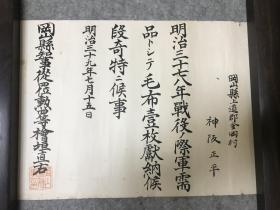 岡山縣上道郡金岡村
神阪正平
明治三十七八年戰役ノ際軍需
品トシテ毛布壹枚獻納候
段奇特ニ候事
明治三十九年七月十五日
岡山縣知事從四位勲四等檜垣直右